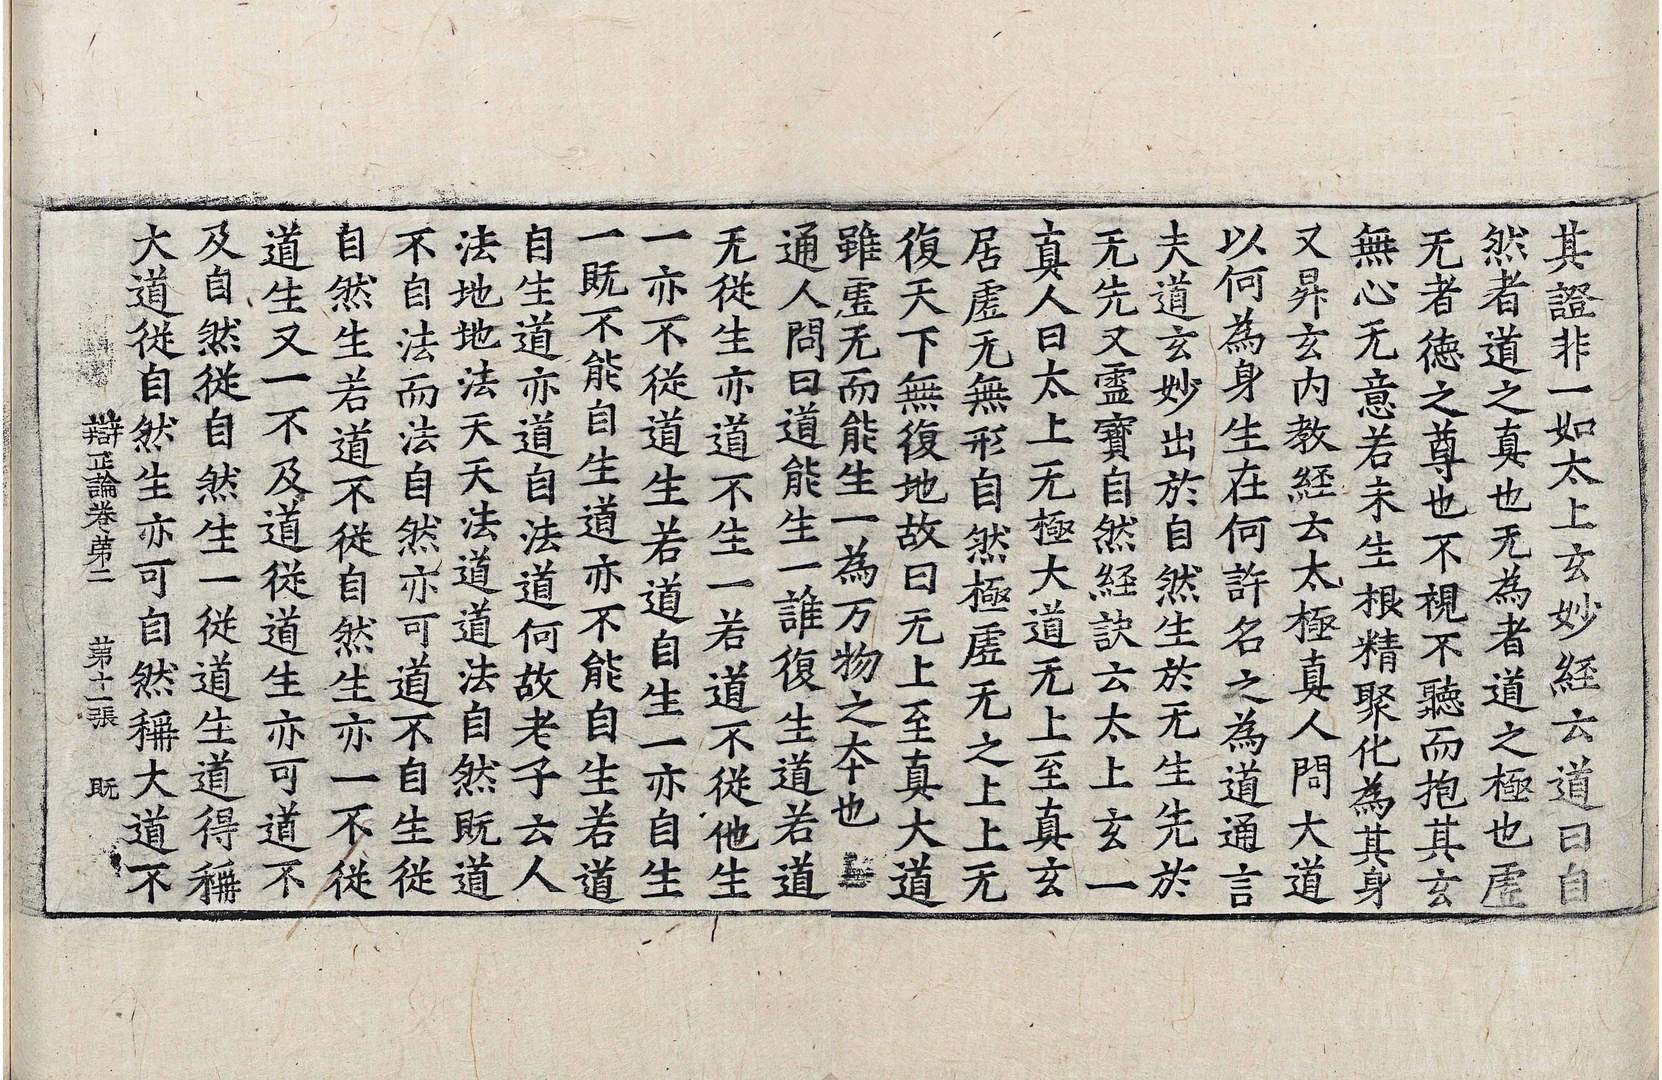 其證非一如太上玄妙經云道曰自
然者道之真也无為者道之極也虛
无者德之尊也不視不聽而抱其玄
無心无意若未生根精聚化為其身
又昇玄内教經云太極真人問大道
以何為身生在何許名之為道通言
夫道玄妙出於自然生於无生先於
无先又靈寶自然經訣云太上玄一
真人曰太上无極大道无上至真玄
居虛无無形自然極虛无之上上无
復天下無復地故曰无上至真大道
雖虛无而能生一為万物之夲也
通人問曰道能生一誰復生道若道
无從生亦道不生一若道不從他生
一亦不從道生若道自生一亦自生
一既不能自生道亦不能自生若道
自生道亦道自法道何故老子云人
法地地法天天法道道法自然既道
不自法而法自然亦可道不自生從
自然生若道不從自然生亦一不從
道生又一不及道從道生亦可道不
及自然從自然生一從道生道得稱
大道從自然生亦可自然稱大道不
辯正論卷苐二 苐十二張 既